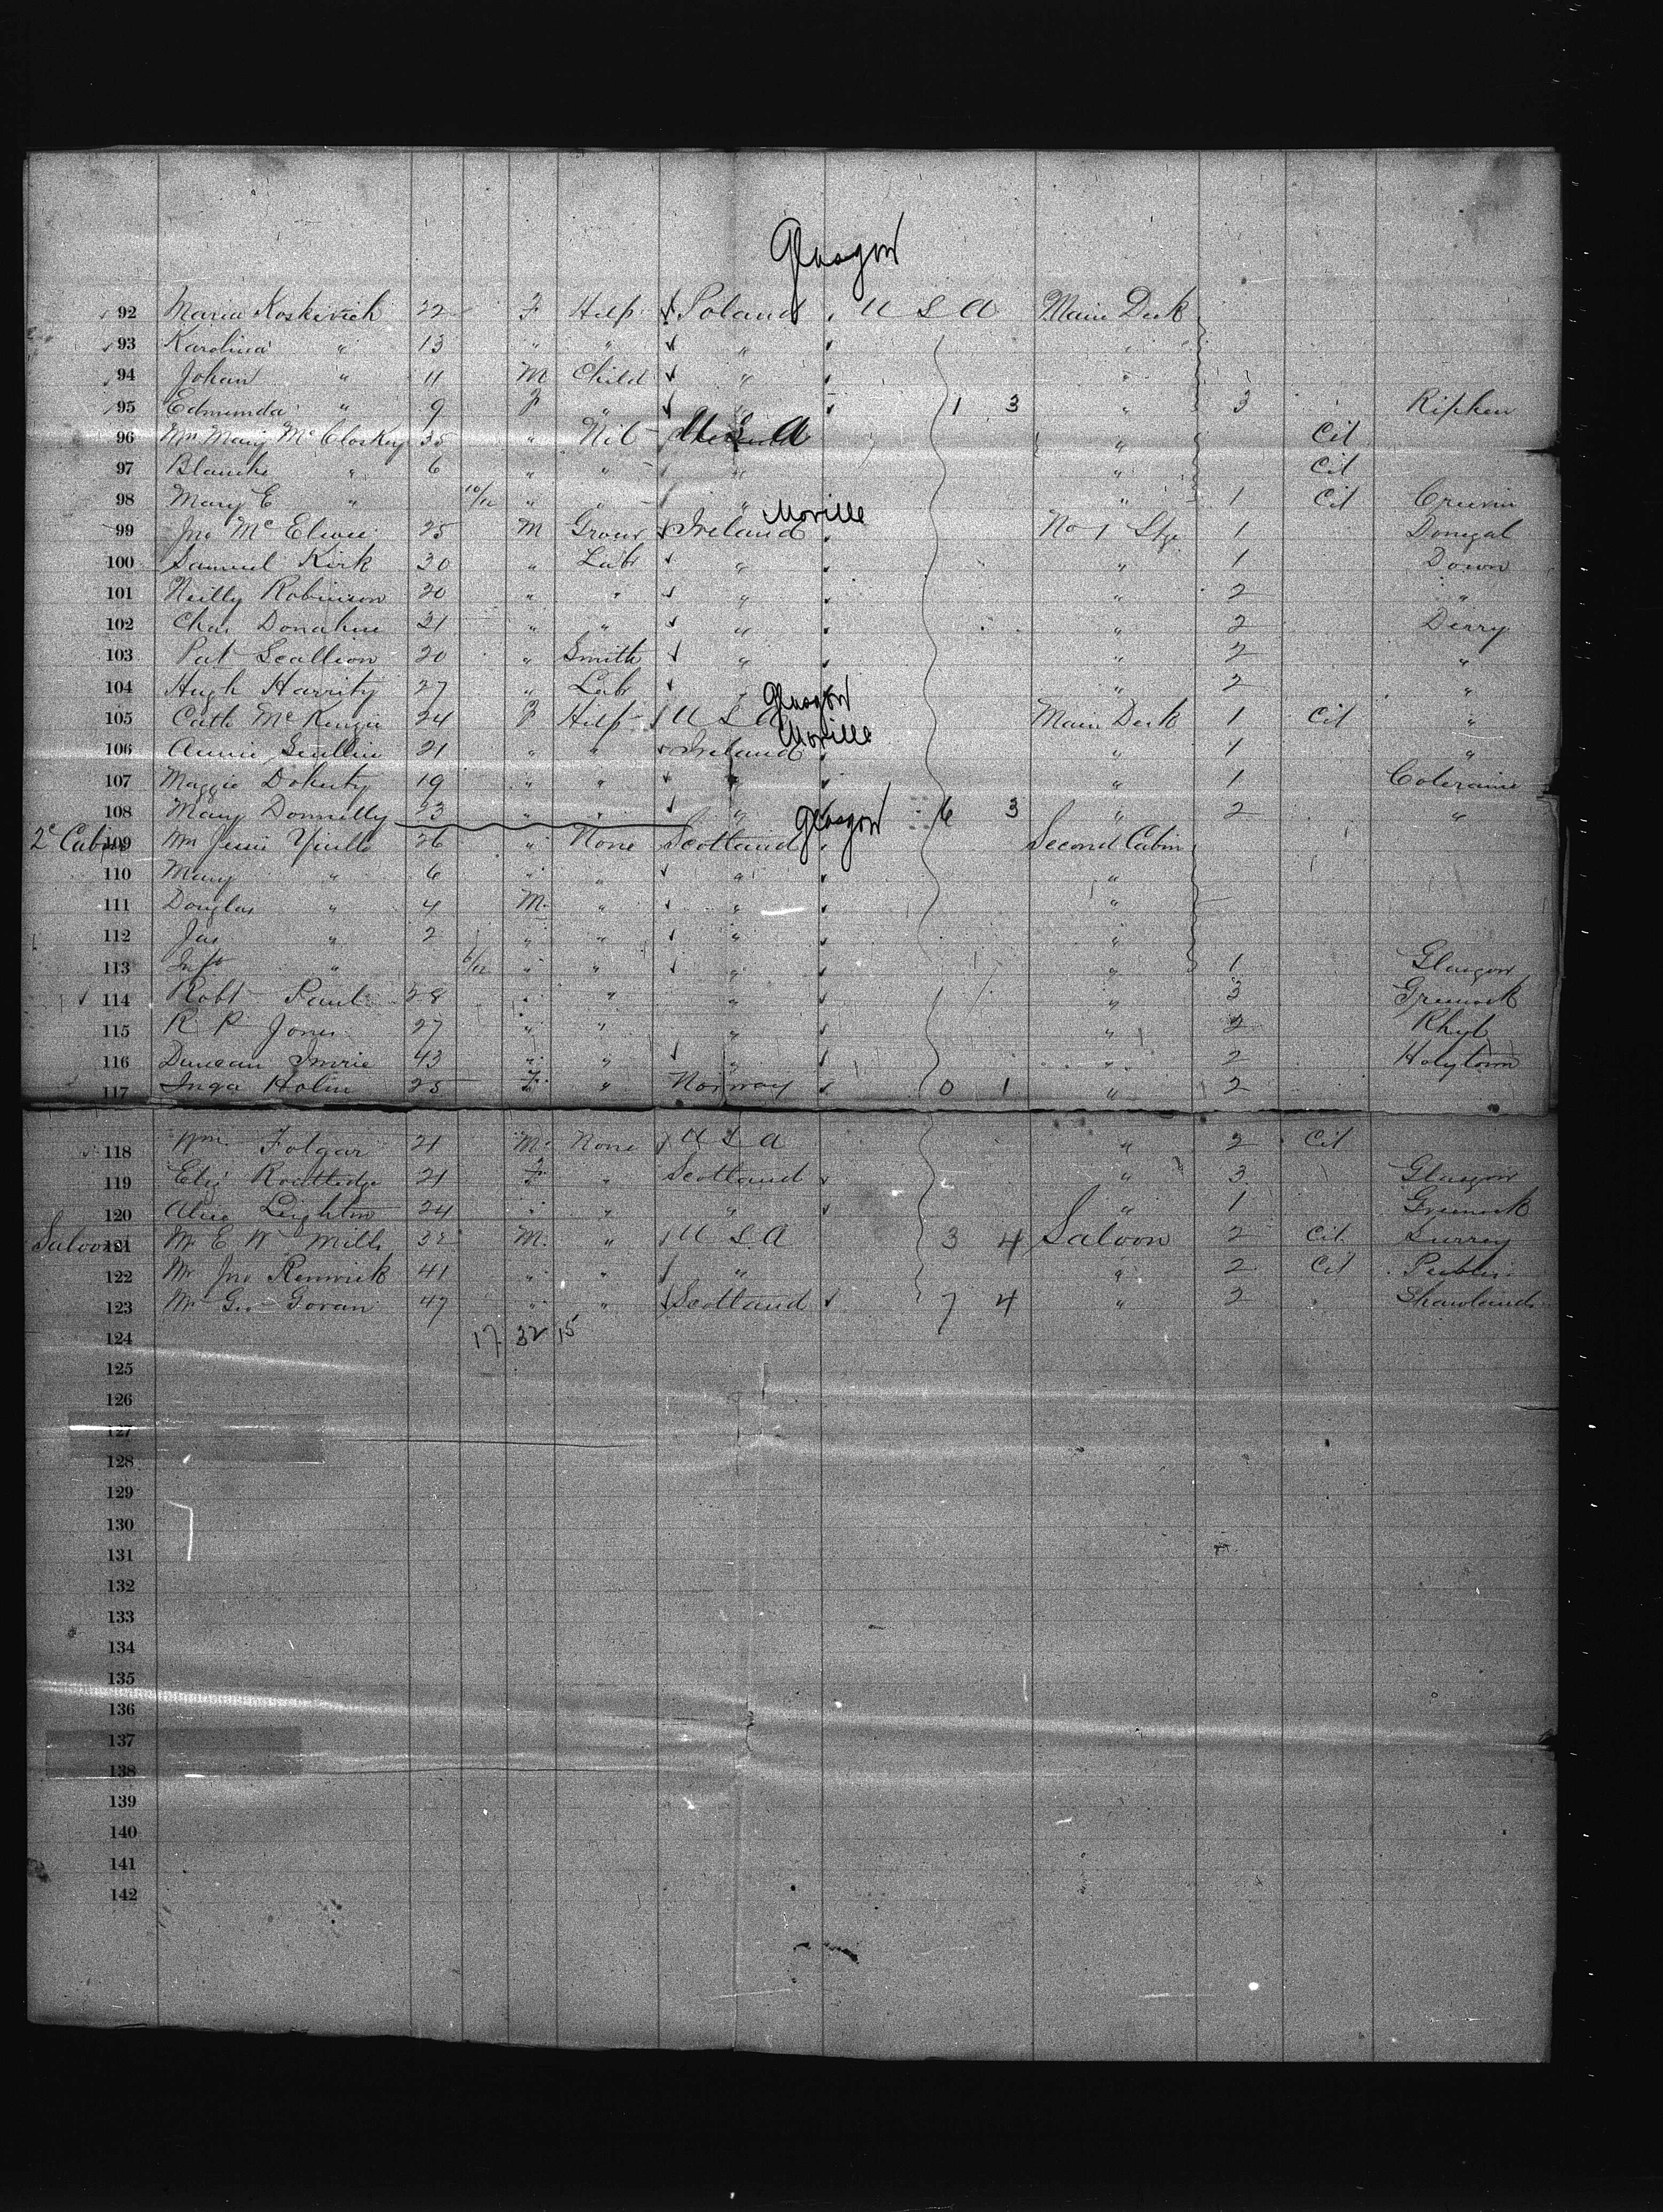 Glasgow
92 Maria Koskivich 22 F Help Poland U S A Main Deck
93 Karolina " 13 " " " "
94 Johan " 11 M Child " "
95 Edmunda " 9 F " " 1 3 " 3 Ripken
96 Mrs Mary McCloskey 35 " Nil U S A " Cit
97 Blanche " 6 " " " " Cit
98 Mary E " 10/12 " " " " 1 Cit
Moville
99 Jno McElwee 25 M Grocer Ireland No 1 Stge 1 Donegal
100 Samuel Kirk 30 " Labr " " 1 Down
101 Neilly Robinson 20 " " " " 2 "
102 Chas Donahue 21 " " " " 2 Derry
103 Pat Scallion 20 " Smith " " 2 "
104 Hugh Harrity 27 " Labr " " 2 "
Glasgow
105 Cath McKenzie 24 F Help U S A Main Deck 1 Cit "
Moville
106 Annie Scullin 21 " " Ireland " 1 "
107 Maggie Doherty 19 " " " " 1 Coleraine
108 Mary Donnelly 23 " " " 6 3 " 2 "
Glasgow
2d Cabin 109 Mrs Jessie Yuille 26 " None Scotland Second Cabin
110 Mary " 6 " " " "
111 Douglas " 4 M " " "
112 Jas " 2 " " " "
113 Inft " 6/12 " " " " 1 Glasgow
114 Robt Paul 28 " " " " 3 Greenock
115 R P Jones 27 " " " " 2 Rhyl
116 Duncan Imrie 43 " " " " 2 Holytown
117 Inga Holm 25 F " Norway 0 1 " 2
118 Wm Folgar 21 M None U S A " 2 Cit
119 Eliz Routledge 21 F " Scotland " 3 Glasgow
120 Alice Leighton 24 " " " " 1 Greenock
Saloon 121 Mr E W Mills 32 M " U S A 3 4 Saloon 2 Cit Surrey
122 Mr Jno Renwick 41 " " " " 2 Cit
123 Mr Geo Govan 47 " " Scotland 7 4 " 2 Shawlands
124 17 32 15
125
126
127
128
129
130
131
132
133
134
135
136
137
138
139
140
141
142